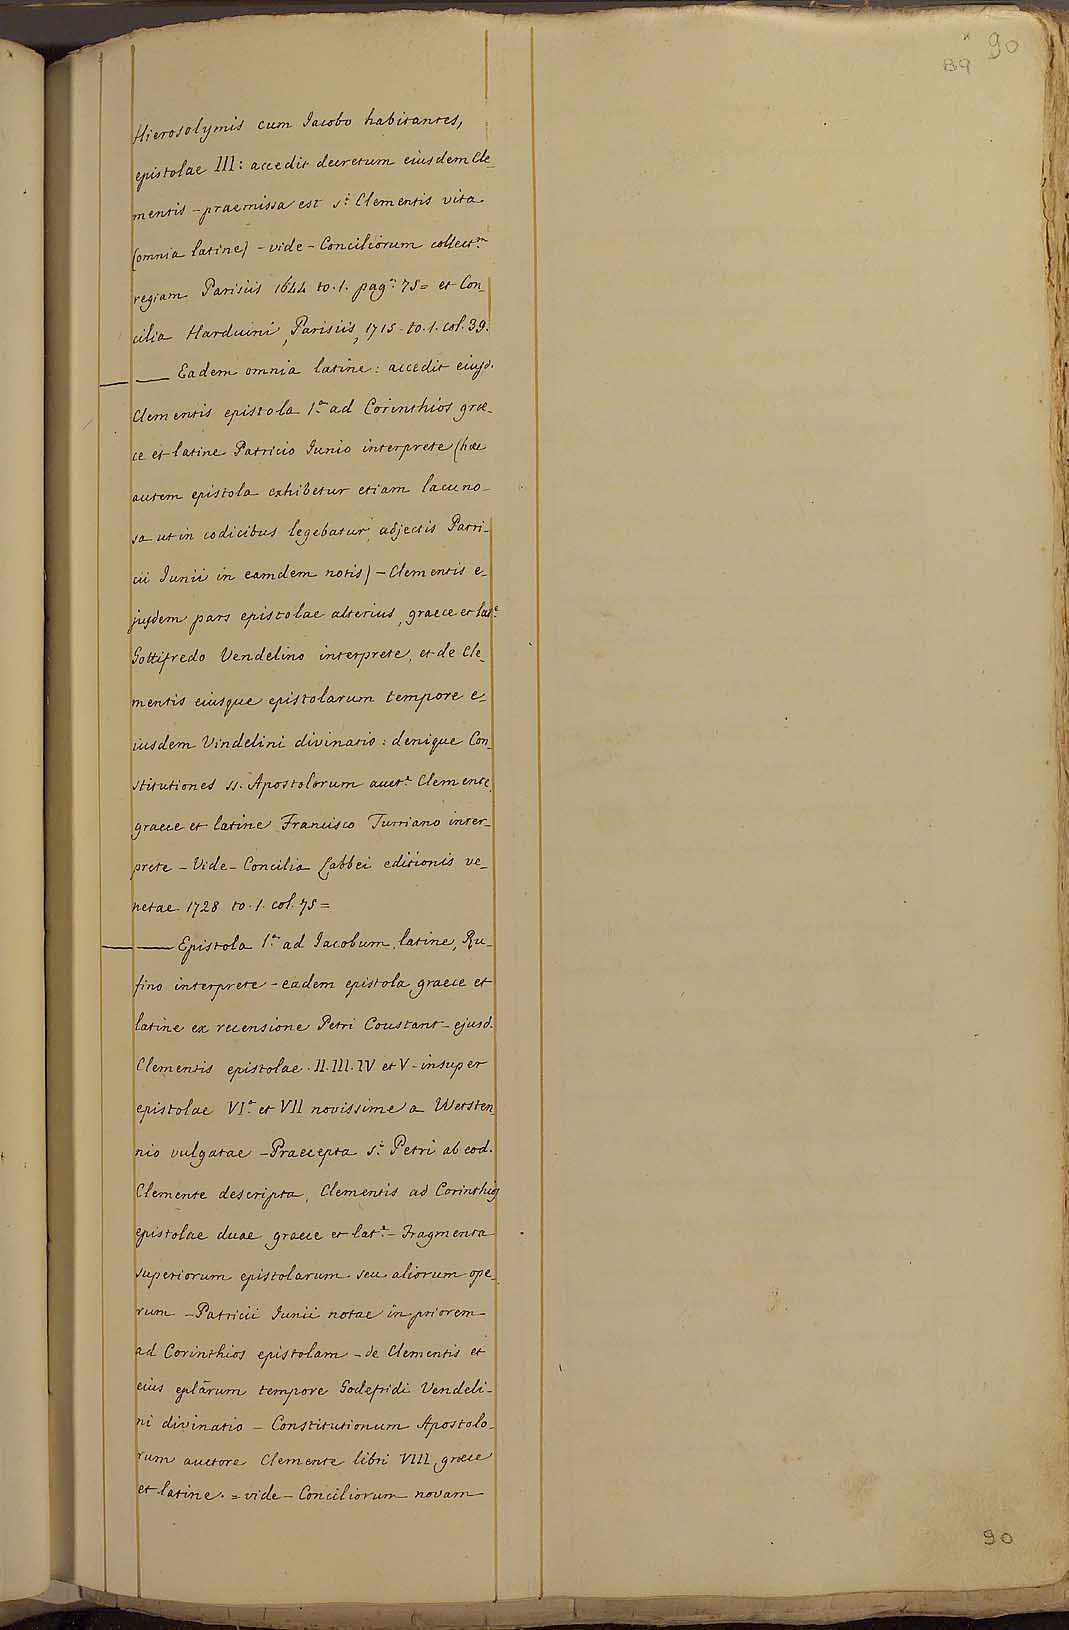 90
89
Hierosolymis cum Iacobo habitantes,
epistolae III: accedit decretum eiusdem Cle_
mentis - praemissa est s.ti Clementis vita
(omnia latine) - vide - Conciliorum collect.m
regiam Parisiis 1644 to. 1. pag.a 75 = et Con_
cilia Harduini, Parisiis, 1715 - to. 1. col. 39.
___ Eadem omnia latine: accedit eiusd.
Clementis epistola 1.a ad Corinthios grae_
ce et latine Patricio Iunio interprete (haec
autem epistola exhibetur etiam lacuno_
sa ut in codicibus legebatur, adjectis Patri_
cii Iunii in eamdem notis) - Clementis e_
jusdem pars epistolae alterius, graece et lat.e
Gottifredo Vendelino interprete, et de Cle_
mentis eiusque epistolarum tempore e_
iusdem Vindelini divinatio: denique Con_
stitutiones ss. Apostolorum auct.e Clemente
graece et latine Francisco Turriano inter_
prete - Vide - Concilia Labbei editionis ve_
netae 1728 to. 1. col. 75 =
___ Epistola 1.a ad Iacobum, latine, Ru_
fino interprete - eadem epistola graece et
latine ex recensione Petri Coustant - ejusd.
Clementis epistolae. II. III. IV et V - insuper
epistolae VI.a et VII novissime a Wetsten_
nio vulgatae - Praecepta s.ti Petri ab eod.
Clemente descripta, Clementis ad Corinthios
epistolae duae graece et lat.e - Fragmenta
superiorum epistolarum seu aliorum ope_
rum - Patricii Iunii notae in priorem
ad Corinthios epistolam - de Clementis et
eius eplārum tempore Godefridi Vendeli_
ni divinatio - Constitutionum Apostolo_
rum auctore Clemente libri VIII, graece
et latine. = vide - Conciliorum novam
90